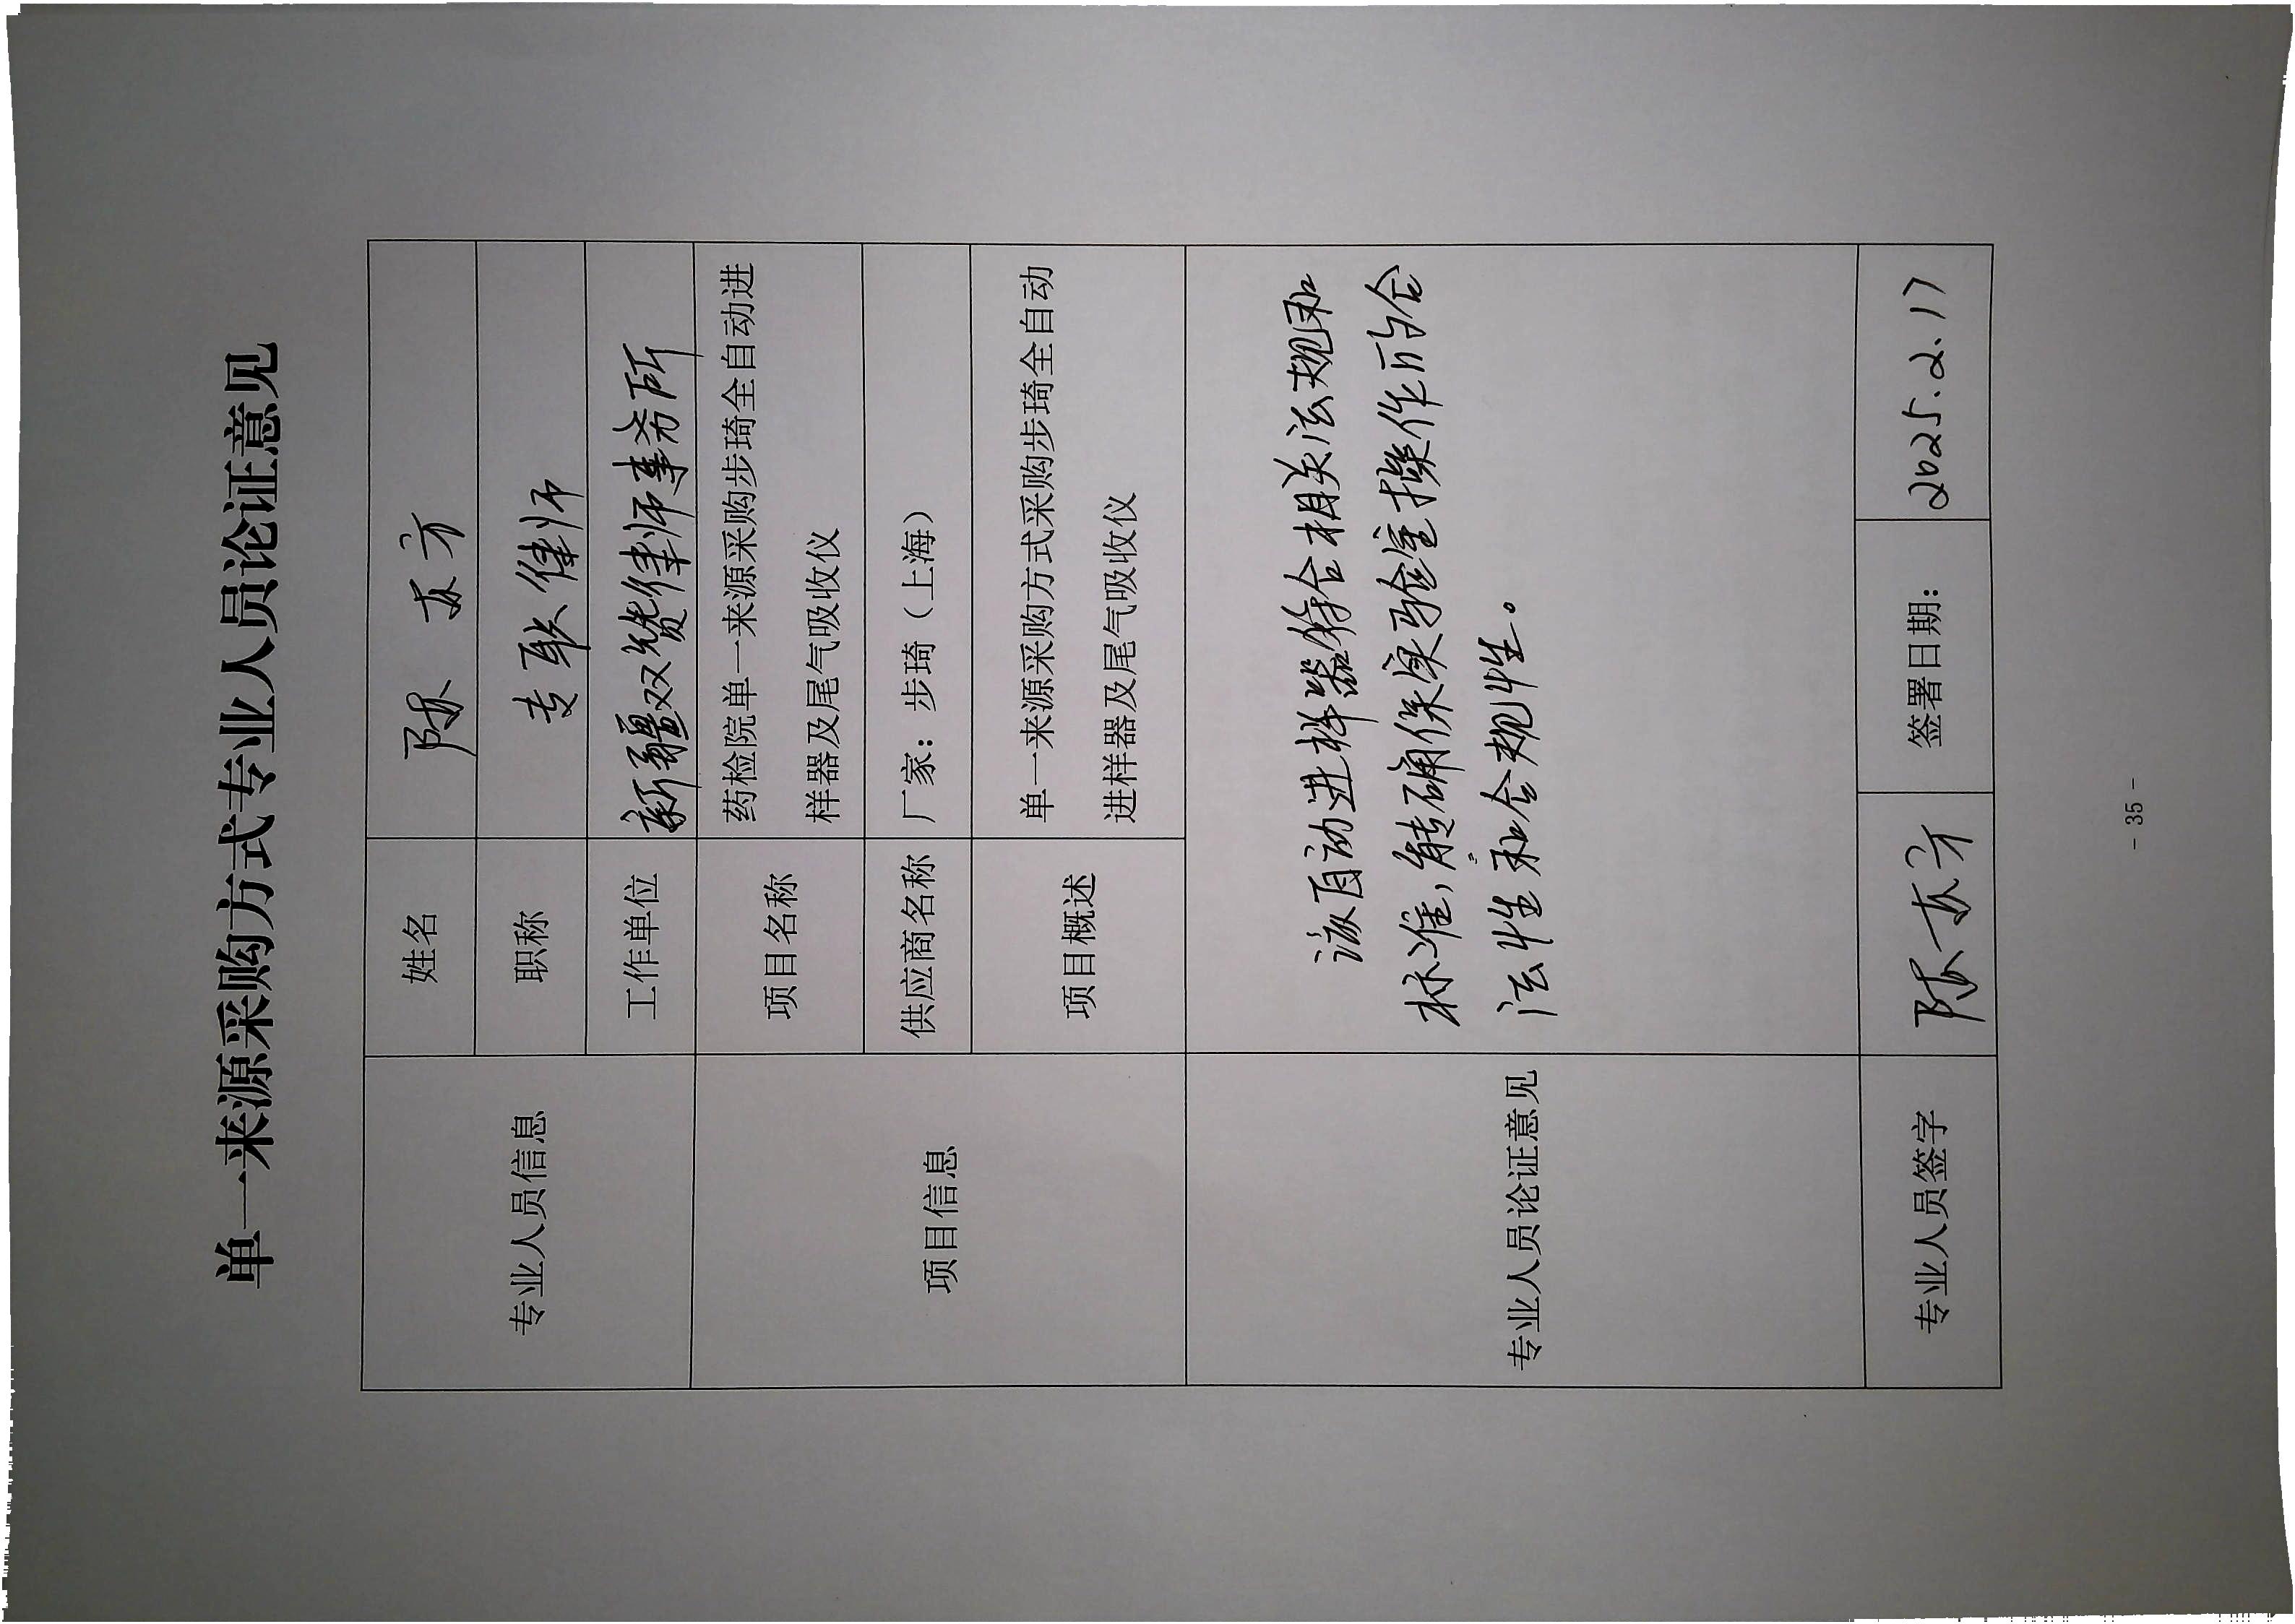 单一来源采购方式专业人员论证意见
专业人员信息
姓名
陈方
职称
专职律师
工作单位
新疆双赞律师事务所
项目信息
项目名称
药检院单一来源采购步琦全自动进
样器及尾气吸收仪
供应商名称
厂家：步琦（上海）
项目概述
单一来源采购方式采购步琦全自动
进样器及尾气吸收仪
专业人员论证意见
该自动进样器符合相关法规和
标准，能确保实验室操作的合
法性和合规性。
专业人员签字
陈方
签署日期：
2025.2.17
- 35 -